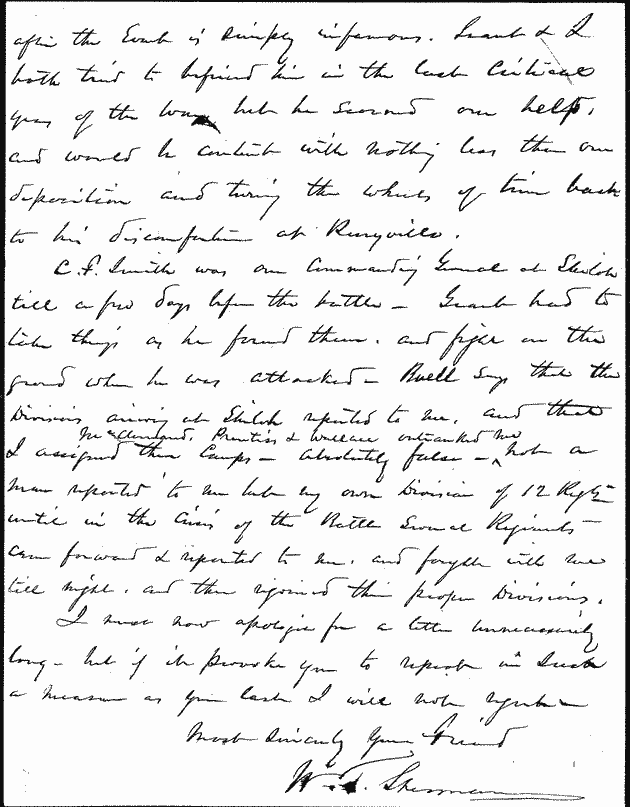 after the Event is simply infamous. Grant & I
both tried to befriend him in the last Critical
year of the War but he scorned our help,
and would be content with nothing less than our
deposition and turning the wheels of time back
to his discomfiture at Perryville.
C. F. Smith was our Commanding General at Shiloh
till a few days before the battle - Grant had to
take things as he found them. and fight on the
ground when he was attacked - Buell says that the
Divisions arriving at Shiloh reported to me, and that
McClernand, Prentiss & Wallace outranked me
I assigned their Camps - absolutely false - not a
man reported to me but my own Division of 12 Regts
until in the Crisis of the Battle Several Regiments
came forward & reported to me, and fought with me
till night. and then rejoined their proper Divisions.
I must now apologise for a letter unnecessarily
long - but if it provoke you to repeat in such
a measure as your last I will not regret -
Most Sincerely Your Friend
W. T. Sherman